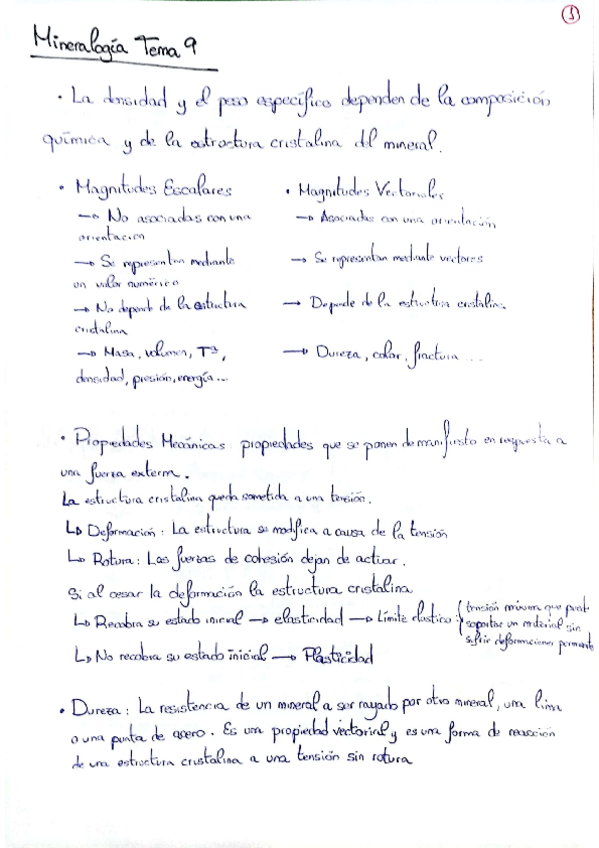 1
Mineralogía Tema 9
· La densidad y el peso específico dependen de la composición
química y de la estructura cristalina del mineral.
· Magnitudes Escalares
→ No asociadas con una
orientación
→ Se representan mediante
un valor numérico
→ No depende de la estructura
cristalina
→ Masa, volumen, Tª,
densidad, presión, energía...
· Magnitudes Vectoriales
→ Asociadas con una orientación
→ Se representan mediante vectores
→ Depende de la estructura cristalina.
→ Dureza, color, fractura ...
· Propiedades Mecánicas propiedades que se ponen de manifiesto en respuesta a
una fuerza externa.
La estructura cristalina queda sometida a una tensión.
↳ Deformación: La estructura se modifica a causa de la tensión
↳ Rotura: Las fuerzas de cohesión dejan de actuar.
Si al cesar la deformación la estructura cristalina
↳ Recobra su estado inicial → elasticidad → Límite elástico: { tensión máxima que puede
soportar un material sin
sufrir deformaciones permanente
↳ No recobra su estado inicial → Plasticidad
· Dureza: La resistencia de un mineral a ser rayado por otro mineral, una lima
o una punta de acero. Es una propiedad vectorial y es una forma de reacción
de una estructura cristalina a una tensión sin rotura